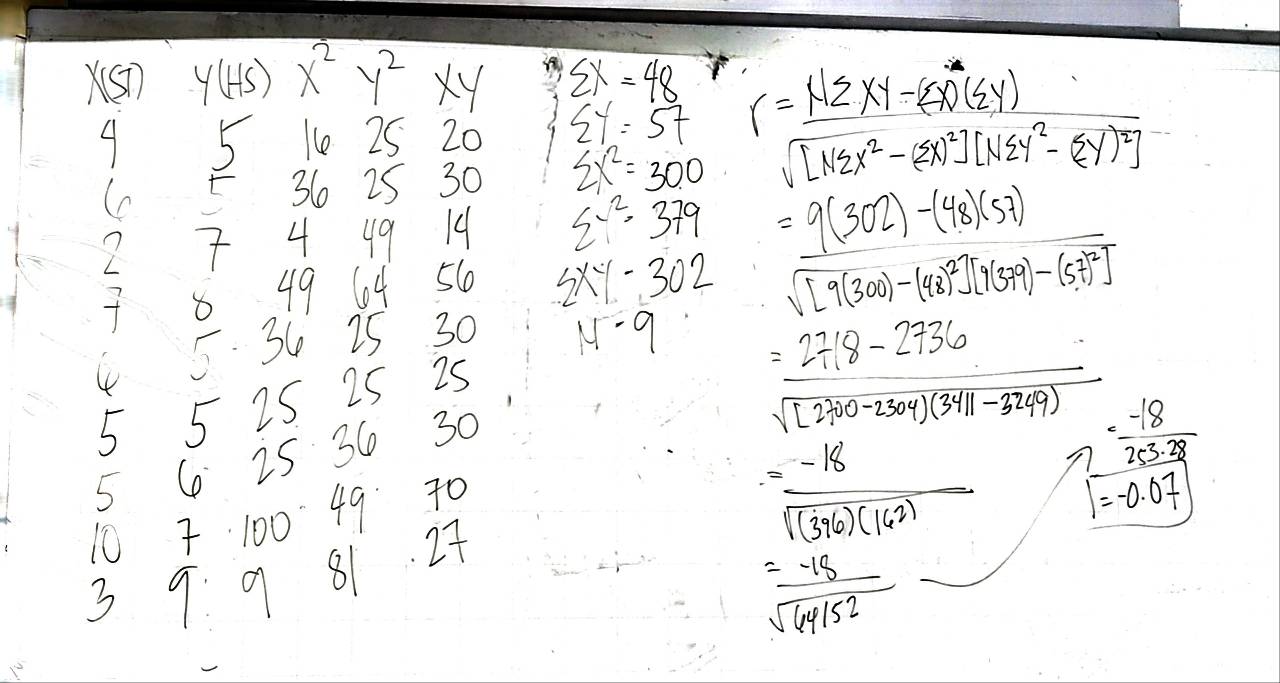 X(ST) Y(HS) X² Y² XY
4 5 16 25 20
6 5 36 25 30
2 7 4 49 14
7 8 49 64 56
6 5 36 25 30
5 5 25 25 25
5 6 25 36 30
10 7 100 49 70
3 9 9 81 27
ΣX = 48
ΣY = 57
ΣX² = 300
ΣY² = 379
ΣXY = 302
N = 9
r = NΣXY - (ΣX)(ΣY)
√[NΣX² - (ΣX)²][NΣY² - (ΣY)²]
= 9(302) - (48)(57)
√[9(300) - (48)²][9(379) - (57)²]
= 2718 - 2736
√[2700 - 2304)(3411 - 3249)
= -18
√(396)(162)
= -18
√64152
= -18
253.28
r = -0.07